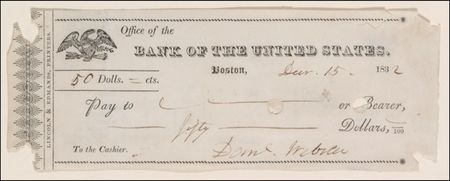 Office of the
BANK OF THE UNITED STATES.
Boston, Decr. 15. 1832
50 Dolls. = cts.
Pay to or Bearer,
fifty Dollars, /100
To the Cashier. Danl. Webster
LINCOLN & EDMANDS, PRINTERS.